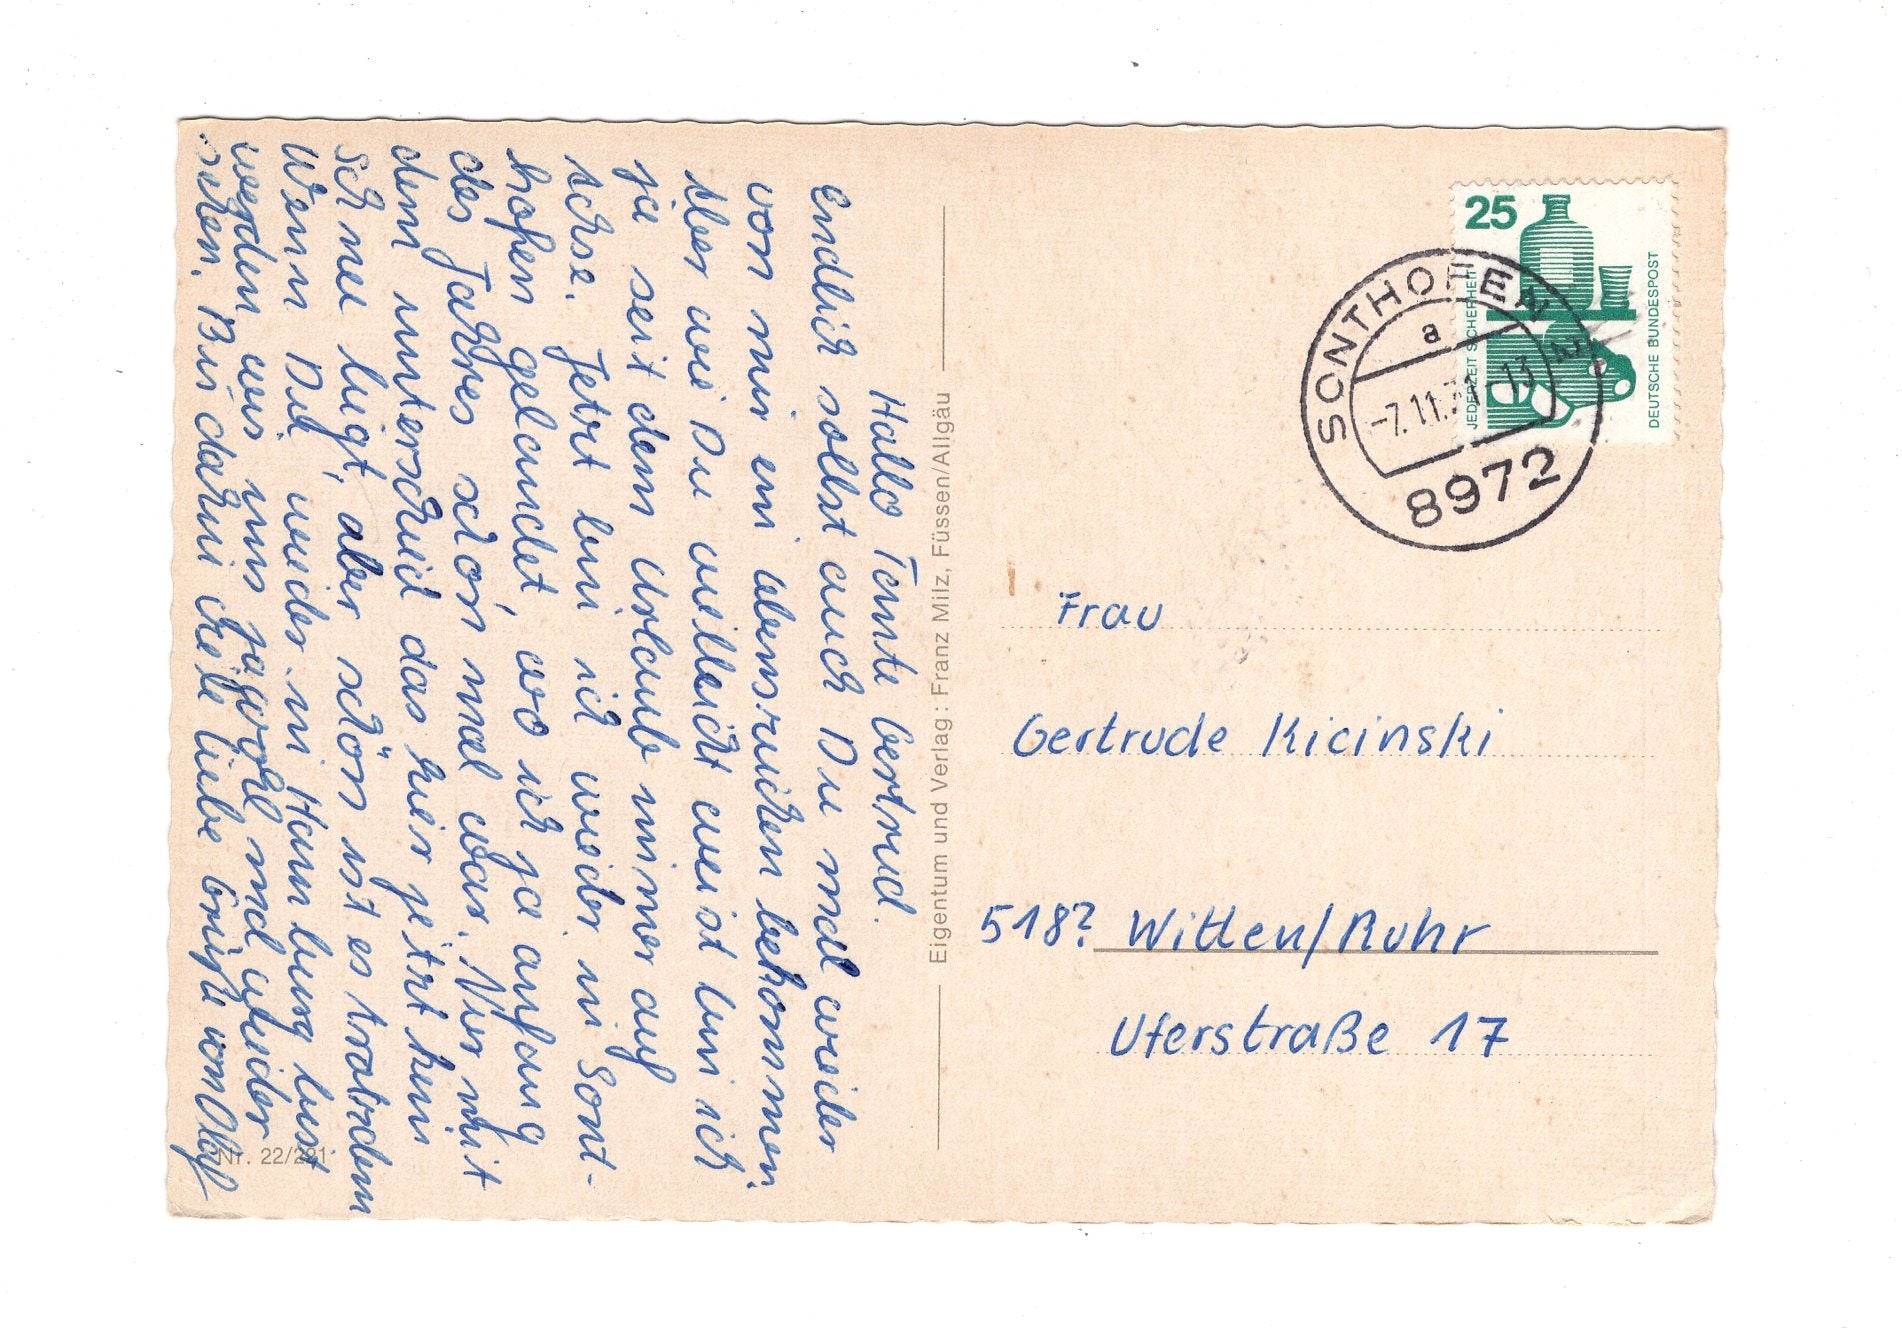 Hallo Tante Gertrud.
Endlich sollst auch Du mal wieder
von mir ein Lebenszeichen bekommen.
Aber wie Du vielleicht weist bin ich
ja seit dem Urlaub immer auf
Achse. Jetzt bin ich wieder in Sont-
hofen gelandet, wo ich ja anfang
des Jahres schon mal war. Nur mit
dem unterschied das hier jetzt kein
Schnee liegt, aber schön ist es trotzdem
Wenn Du wieder in Hamburg bist
werden wir uns jawohl mal wieder
sehen. Bis dahin viele liebe Grüße von Olaf
Nr. 22/221
Eigentum und Verlag: Franz Milz, Füssen/Allgäu
25
JEDERZEIT SICHERHEIT
DEUTSCHE BUNDESPOST
SONTHOFEN
a
-7.11.71-13
8972
Frau
Gertrude Kicinski
518? Witten/Ruhr
Uferstraße 17